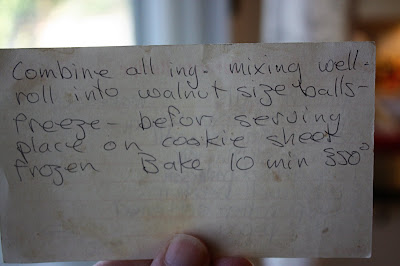 Combine all ing. mixing well.
roll into walnut size balls-
freeze - befor serving
place on cookie sheet
frozen Bake 10 min 350°